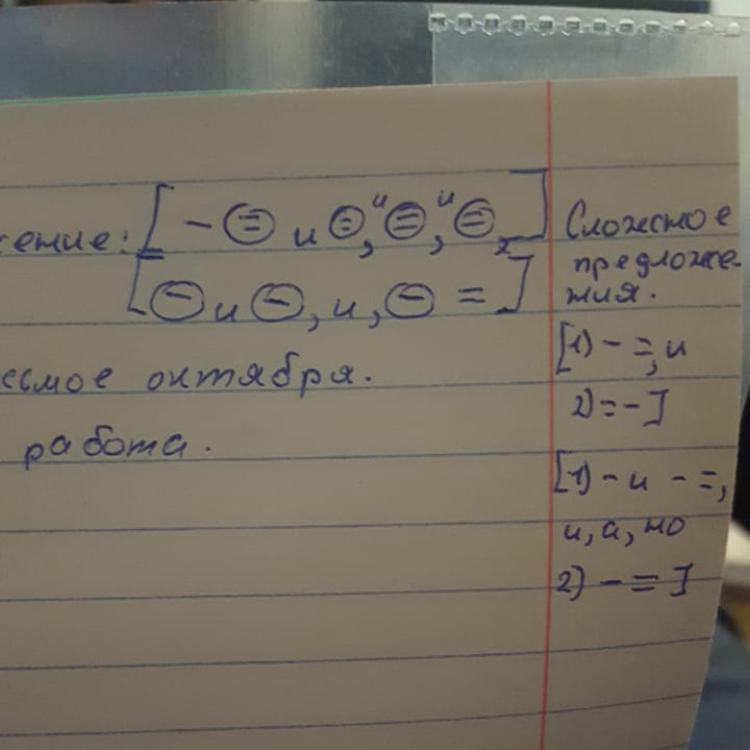 ение: [ - ⊜ и ⊜, и ⊜, и ⊜ ]
[ ⊖ и ⊖, и, ⊖ = ]
есмое октября.
работа.
Сложное
предложе-
ния.
[1) - =, и
2) = - ]
[1) - и - =,
и, а, но
2) - = ]